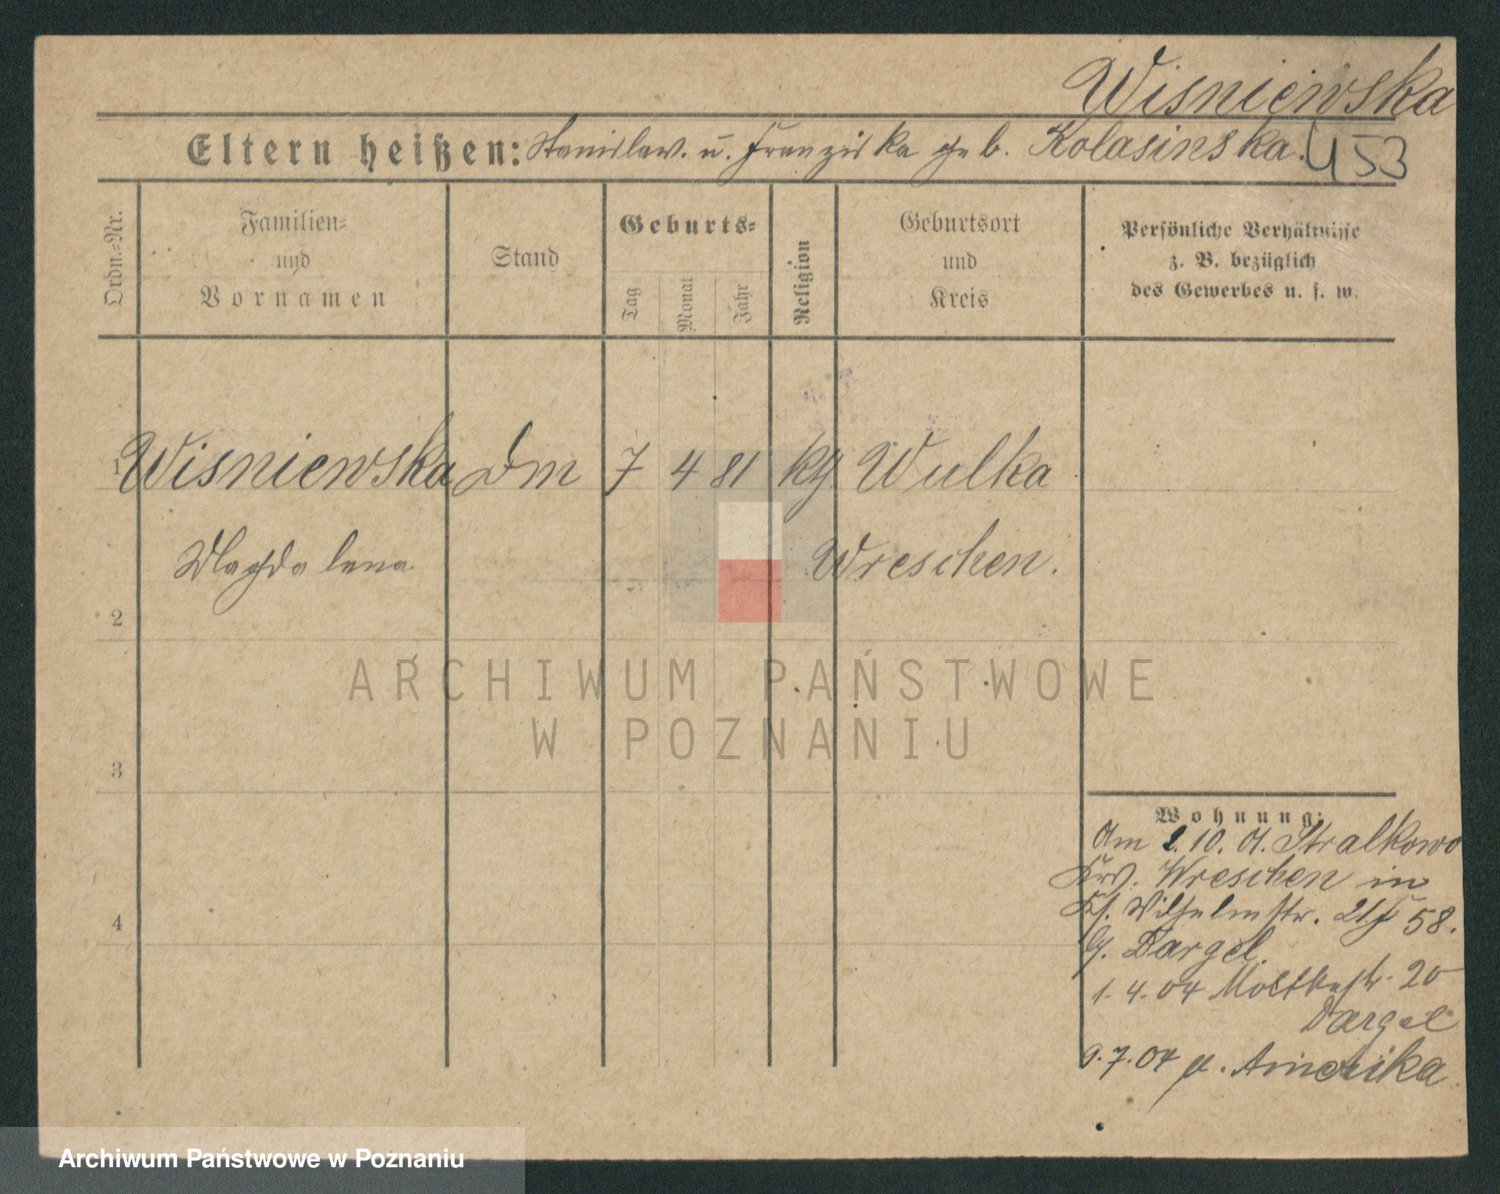 Wisniewska
Eltern heißen: Stanislaw. u. Franziska geb. Kolasinska.
453
Ordn.=Nr.
Familien=
und
Vornamen
Stand
Geburts=
Tag
Monat
Jahr
Religion
Geburtsort
und
Kreis
Persönliche Verhältnisse
z. B. bezüglich
des Gewerbes u. s. w.
1 Wisniewska Dm 7 4 81 kth Wulka
Magdalena Wreschen.
2
ARCHIWUM PAŃSTWOWE
W POZNANIU
3
4
Wohnung:
Am 2.10.01. Stralkowo
Krs. Wreschen in
Wilhelmstr. 58.
b/. Dargel.
1.4.04 Moltkestr. 20
Dargel
9.7.04 n. Amerika.
Archiwum Państwowe w Poznaniu